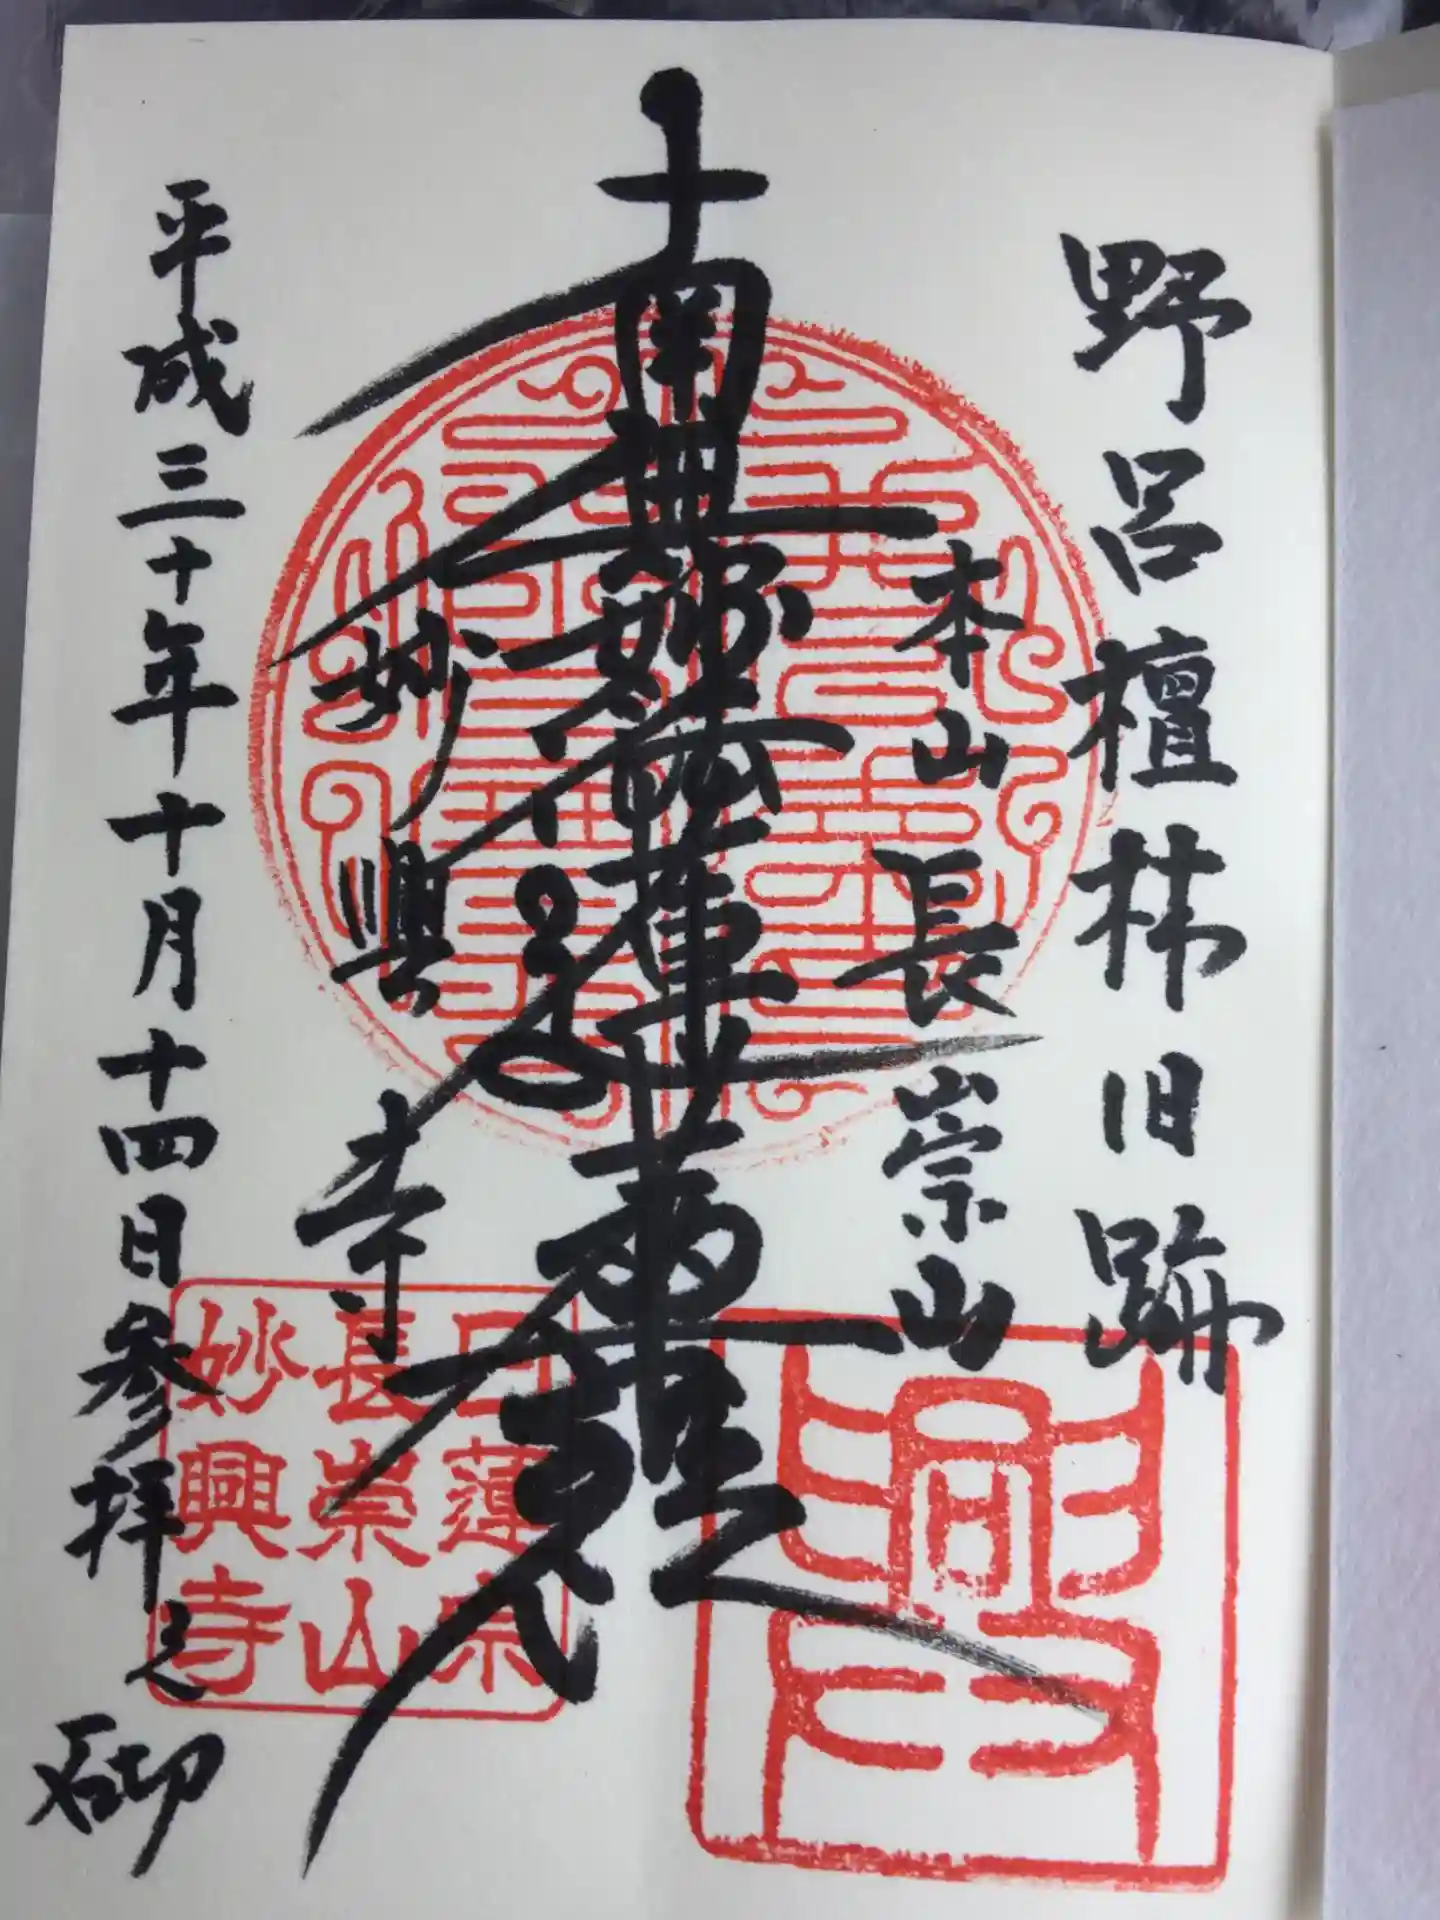 野呂檀林旧跡
本山 長崇山
南無妙法蓮華経
妙興寺
平成三十年十月十四日参拝之
日蓮宗
長崇山
妙興寺
興